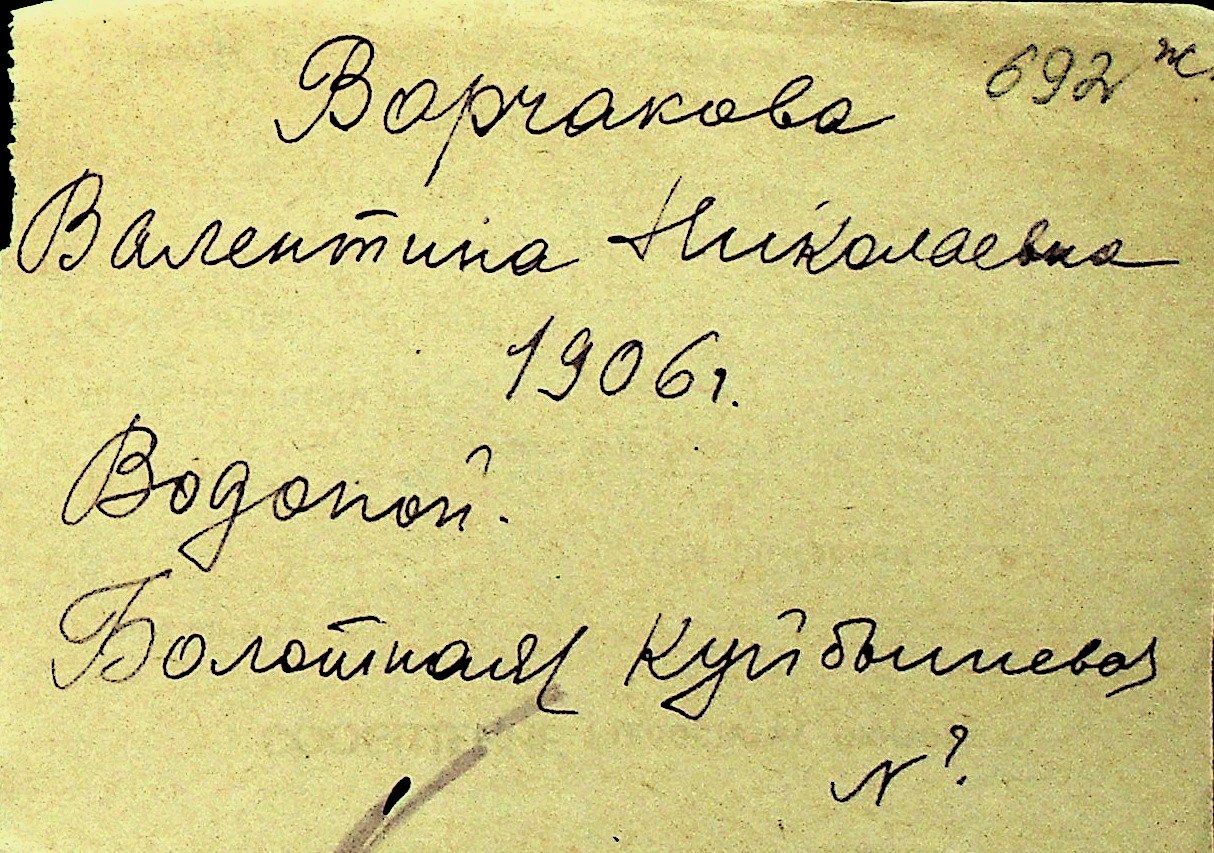 692 ж.
Ворчакова
Валентина Николаевна
1906 г.
Водопой.
Болотная( Куйбышева)
N ?